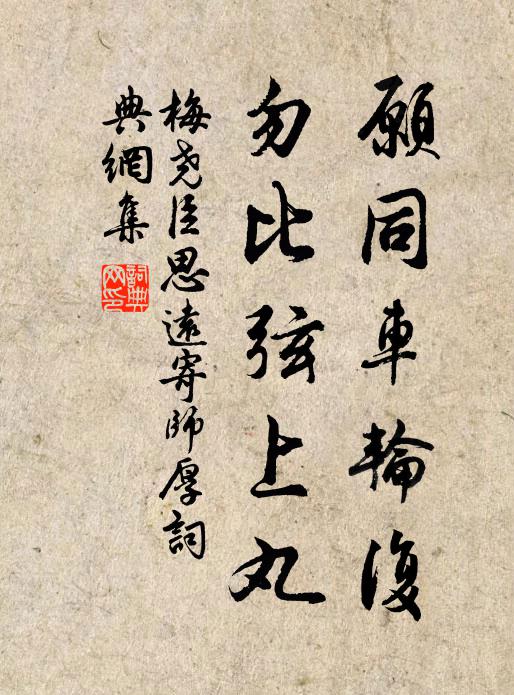 願同車輪復
勿比弦上丸
梅堯臣思遠寄師厚詞
典網集
詞典網印